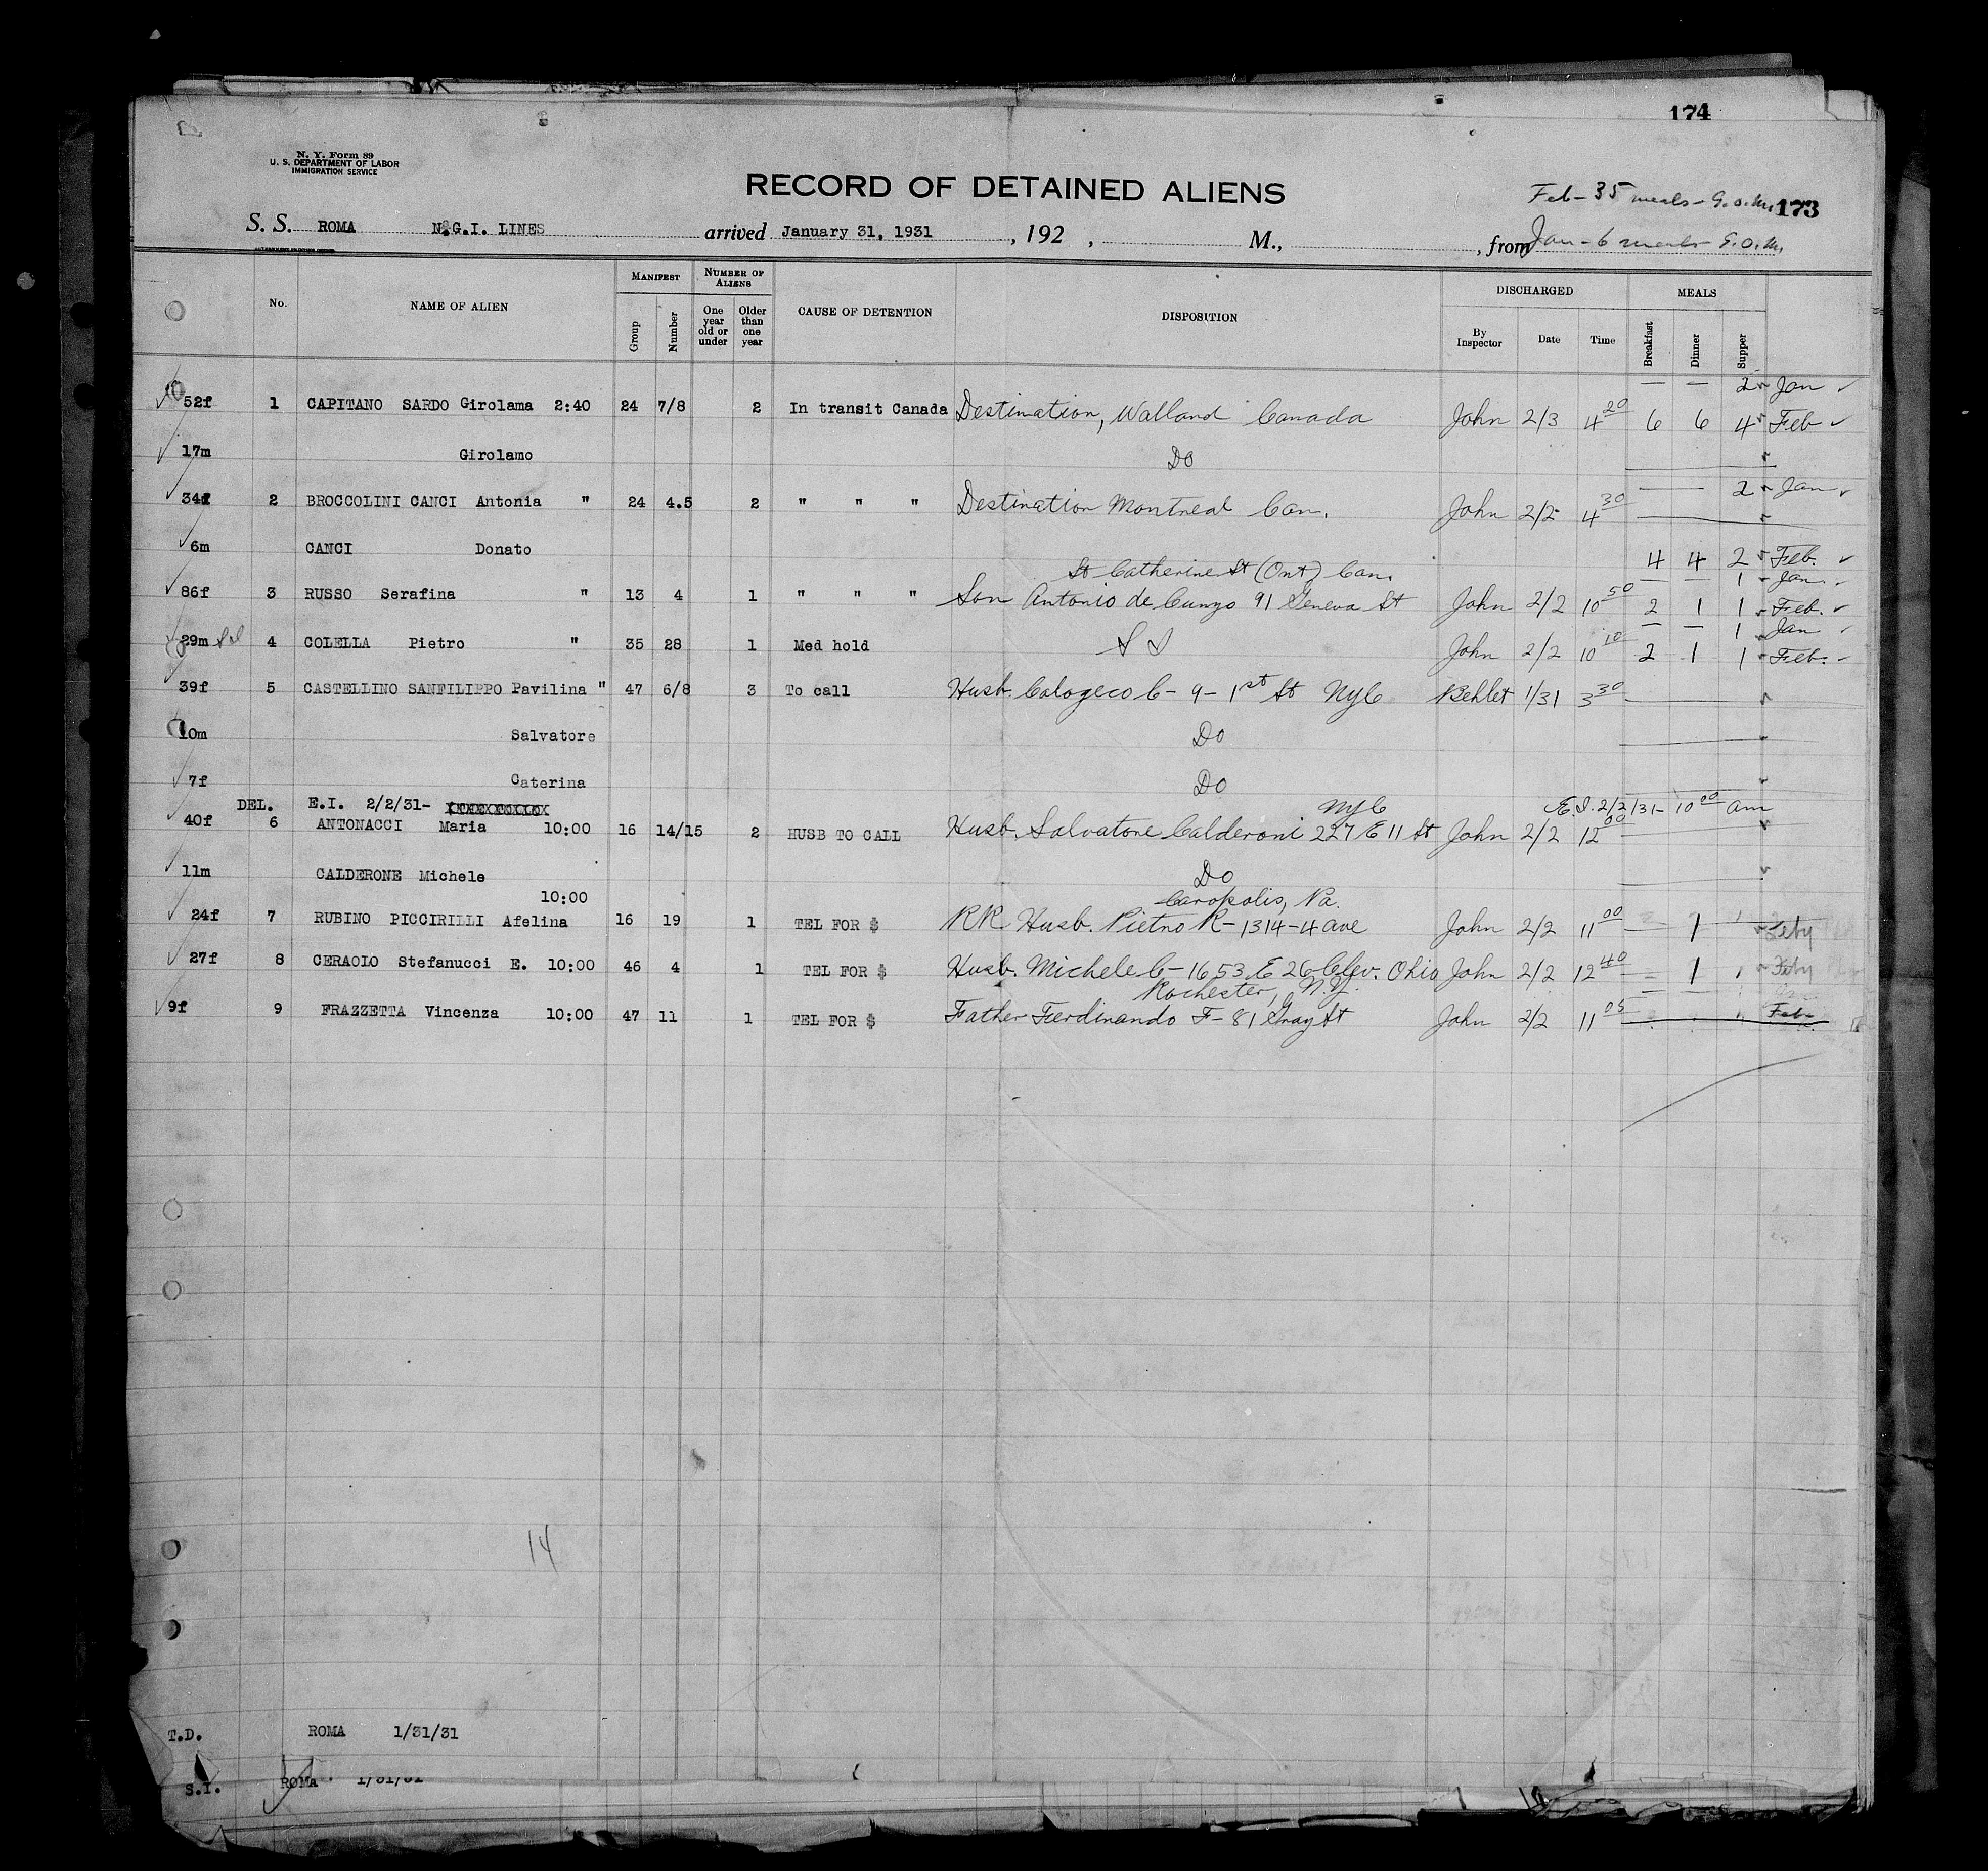 174
N. Y. Form 89
U. S. DEPARTMENT OF LABOR
IMMIGRATION SERVICE
RECORD OF DETAINED ALIENS
Feb - 35 meals - G.O.M. 173
S. S. ROMA N.G.I. LINES arrived January 31, 1931, 192 , M., , from Jan - 6 meals - G.O.M.
No. NAME OF ALIEN MANIFEST Group Number NUMBER OF ALIENS One year old or under Older than one year CAUSE OF DETENTION DISPOSITION DISCHARGED By Inspector Date Time MEALS Breakfast Dinner Supper
— — 2 Jan
52f 1 CAPITANO SARDO Girolama 2:40 24 7/8 2 In transit Canada Destination, Welland Canada John 2/3 4 20 6 6 4 Feb
17m Girolamo Do
— — 2 Jan
34f 2 BROCCOLINI CANCI Antonia " 24 4.5 2 " " " Destination Montreal Can. John 2/2 4 30
6m CANCI Donato 4 4 2 Feb.
St Catherine St (Ont) Can. — — 1 Jan.
86f 3 RUSSO Serafina " 13 4 1 " " " Son Antonio de Cunzo 91 Geneva St John 2/2 10 50 2 1 1 Feb.
— — 1 Jan
29m 4 COLELLA Pietro " 35 28 1 Med hold S I John 2/2 10 10 2 1 1 Feb.
39f 5 CASTELLINO SANFILIPPO Pavilina " 47 6/8 3 To call Husb. Calogeco C - 9 - 1st St NYC 1/31 3 30
10m Salvatore Do
7f Caterina Do
DEL. E.I. 2/2/31- NYC E.I. 2/2/31 - 10 00 am
40f 6 ANTONACCI Maria 10:00 16 14/15 2 HUSB TO CALL Husb. Salvatore Calderoni 227 E 11 St John 2/2 12 00
11m CALDERONE Michele Do
10:00 Caropolis, Pa.
24f 7 RUBINO PICCIRILLI Afelina 16 19 1 TEL FOR $ RR Husb. Pietro R - 1314 - 4 Ave John 2/2 11 00 — 1 Feby
27f 8 CERAOLO Stefanucci E. 10:00 46 4 1 TEL FOR $ Husb. Michele C - 1653 E 26 Clev. Ohio John 2/2 12 40 — 1 Feby
Rochester, N.Y.
9f 9 FRAZZETTA Vincenza 10:00 47 11 1 TEL FOR $ Father Ferdinando F - 81 Gray St John 2/2 11 05 Feb
14
T.D. ROMA 1/31/31
S.I. ROMA 1/31/31